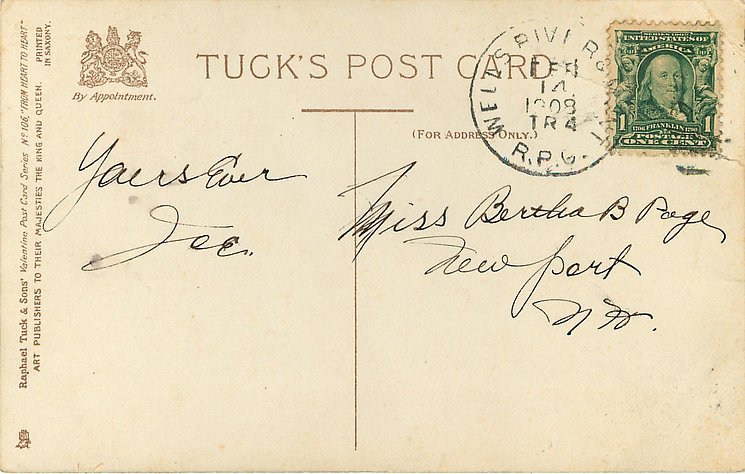 TUCK'S POST CARD
By Appointment.
(FOR ADDRESS ONLY.)
WELLS RIVER &
FEB
14
1908
TR 4
R.P.O.
SERIES 1902
UNITED STATES OF
AMERICA
1706 FRANKLIN 1790
POSTAGE
1 ONE CENT 1
Yours Ever
Joe.
Miss Bertha B Page,
Newport
N H.
Raphael Tuck & Sons' Valentine Post Card Series No 106, "FROM HEART TO HEART"
ART PUBLISHERS TO THEIR MAJESTIES THE KING AND QUEEN.
PRINTED
IN SAXONY.